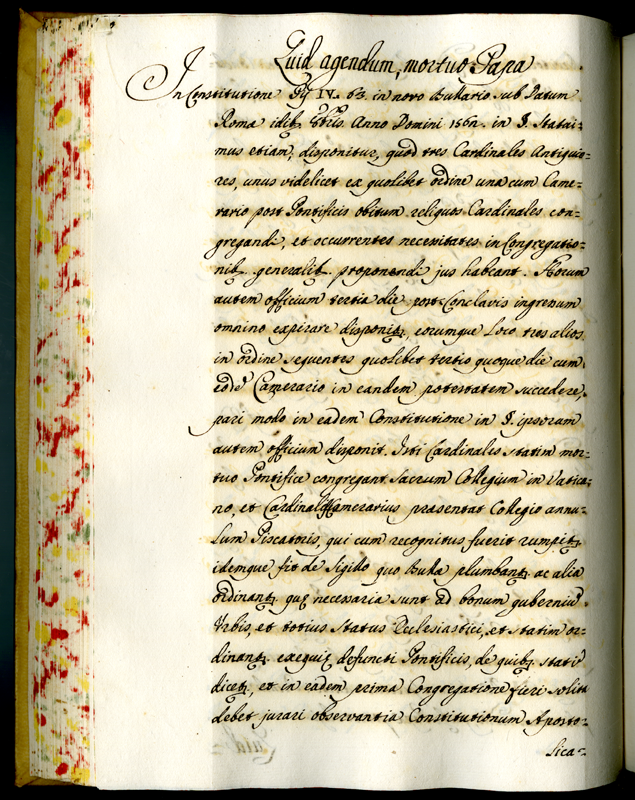 Quid agendum, mortuo Papa
In Constitutione Pij IV. 63. in novo Bullario sub Datum
Romæ idib. 8bris. Anno Domini 1562. in §. Statui=
mus etiam, disponitur, quod tres Cardinales Antiquio=
res, unus videlicet ex quolibet ordine una cum Came=
rario post Pontificis obitum reliquos Cardinales con=
gregandi, et occurrentes necessitates in Congregatio=
nib. generalib. proponendi jus habeant. Horum
autem officium tertia die post Conclavis ingressum
omnino expirare disponitr, eorumque loco tres alios
in ordine sequentes quolibet tertio quoque die cum
eodē Camerario in eandem potestatem succedere,
pari modo in eadem Constitutione in §. ipsorum
autem officium disponit. Isti Cardinales statim mor=
tuo Pontifice congregant Sacrum Collegium in Vatica=
no, et Cardinalis Camerarius præsentat Collegio annu=
lum Piscatoris, qui cum recognitus fuerit rumpitr,
idemque fit de Sigillo quo Bulla plumbantr ac alia
ordinantr quę necessaria sunt ad bonum guberniū
Urbis, et totius Status Ecclesiastici, et statim or=
dinantr exequię defuncti Pontificis, de quib. statī
dicetr, et in eadem prima Congregatione fieri solita
debet jurari observantia Constitutionum Aposto=
lica=